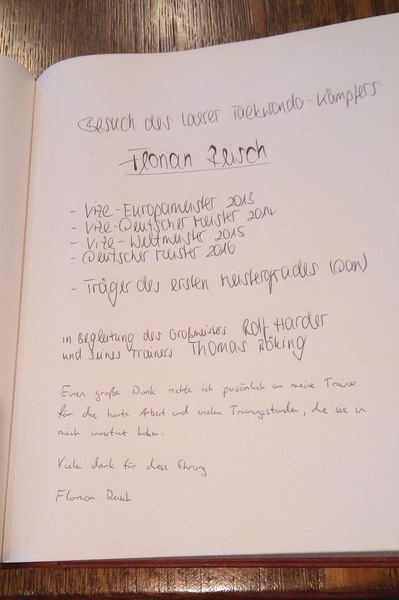 Besuch des Laurer Taekwondo-Kämpfers
Florian Reisch
- Vize-Europameister 2013
- Vize-Deutscher Meister 2014
- Vize-Weltmeister 2015
- Deutscher Meister 2016
- Träger des ersten Meistergrades (Dan)
in Begleitung des Großmeisters Rolf Harder
und seines Trainers Thomas Böking
Einen große Dank richte ich persönlich an meine Trainer
für die harte Arbeit und vielen Trainingsstunden, die sie in
mich investiert haben.
Viele dank für diese Ehrung
Florian Reisch